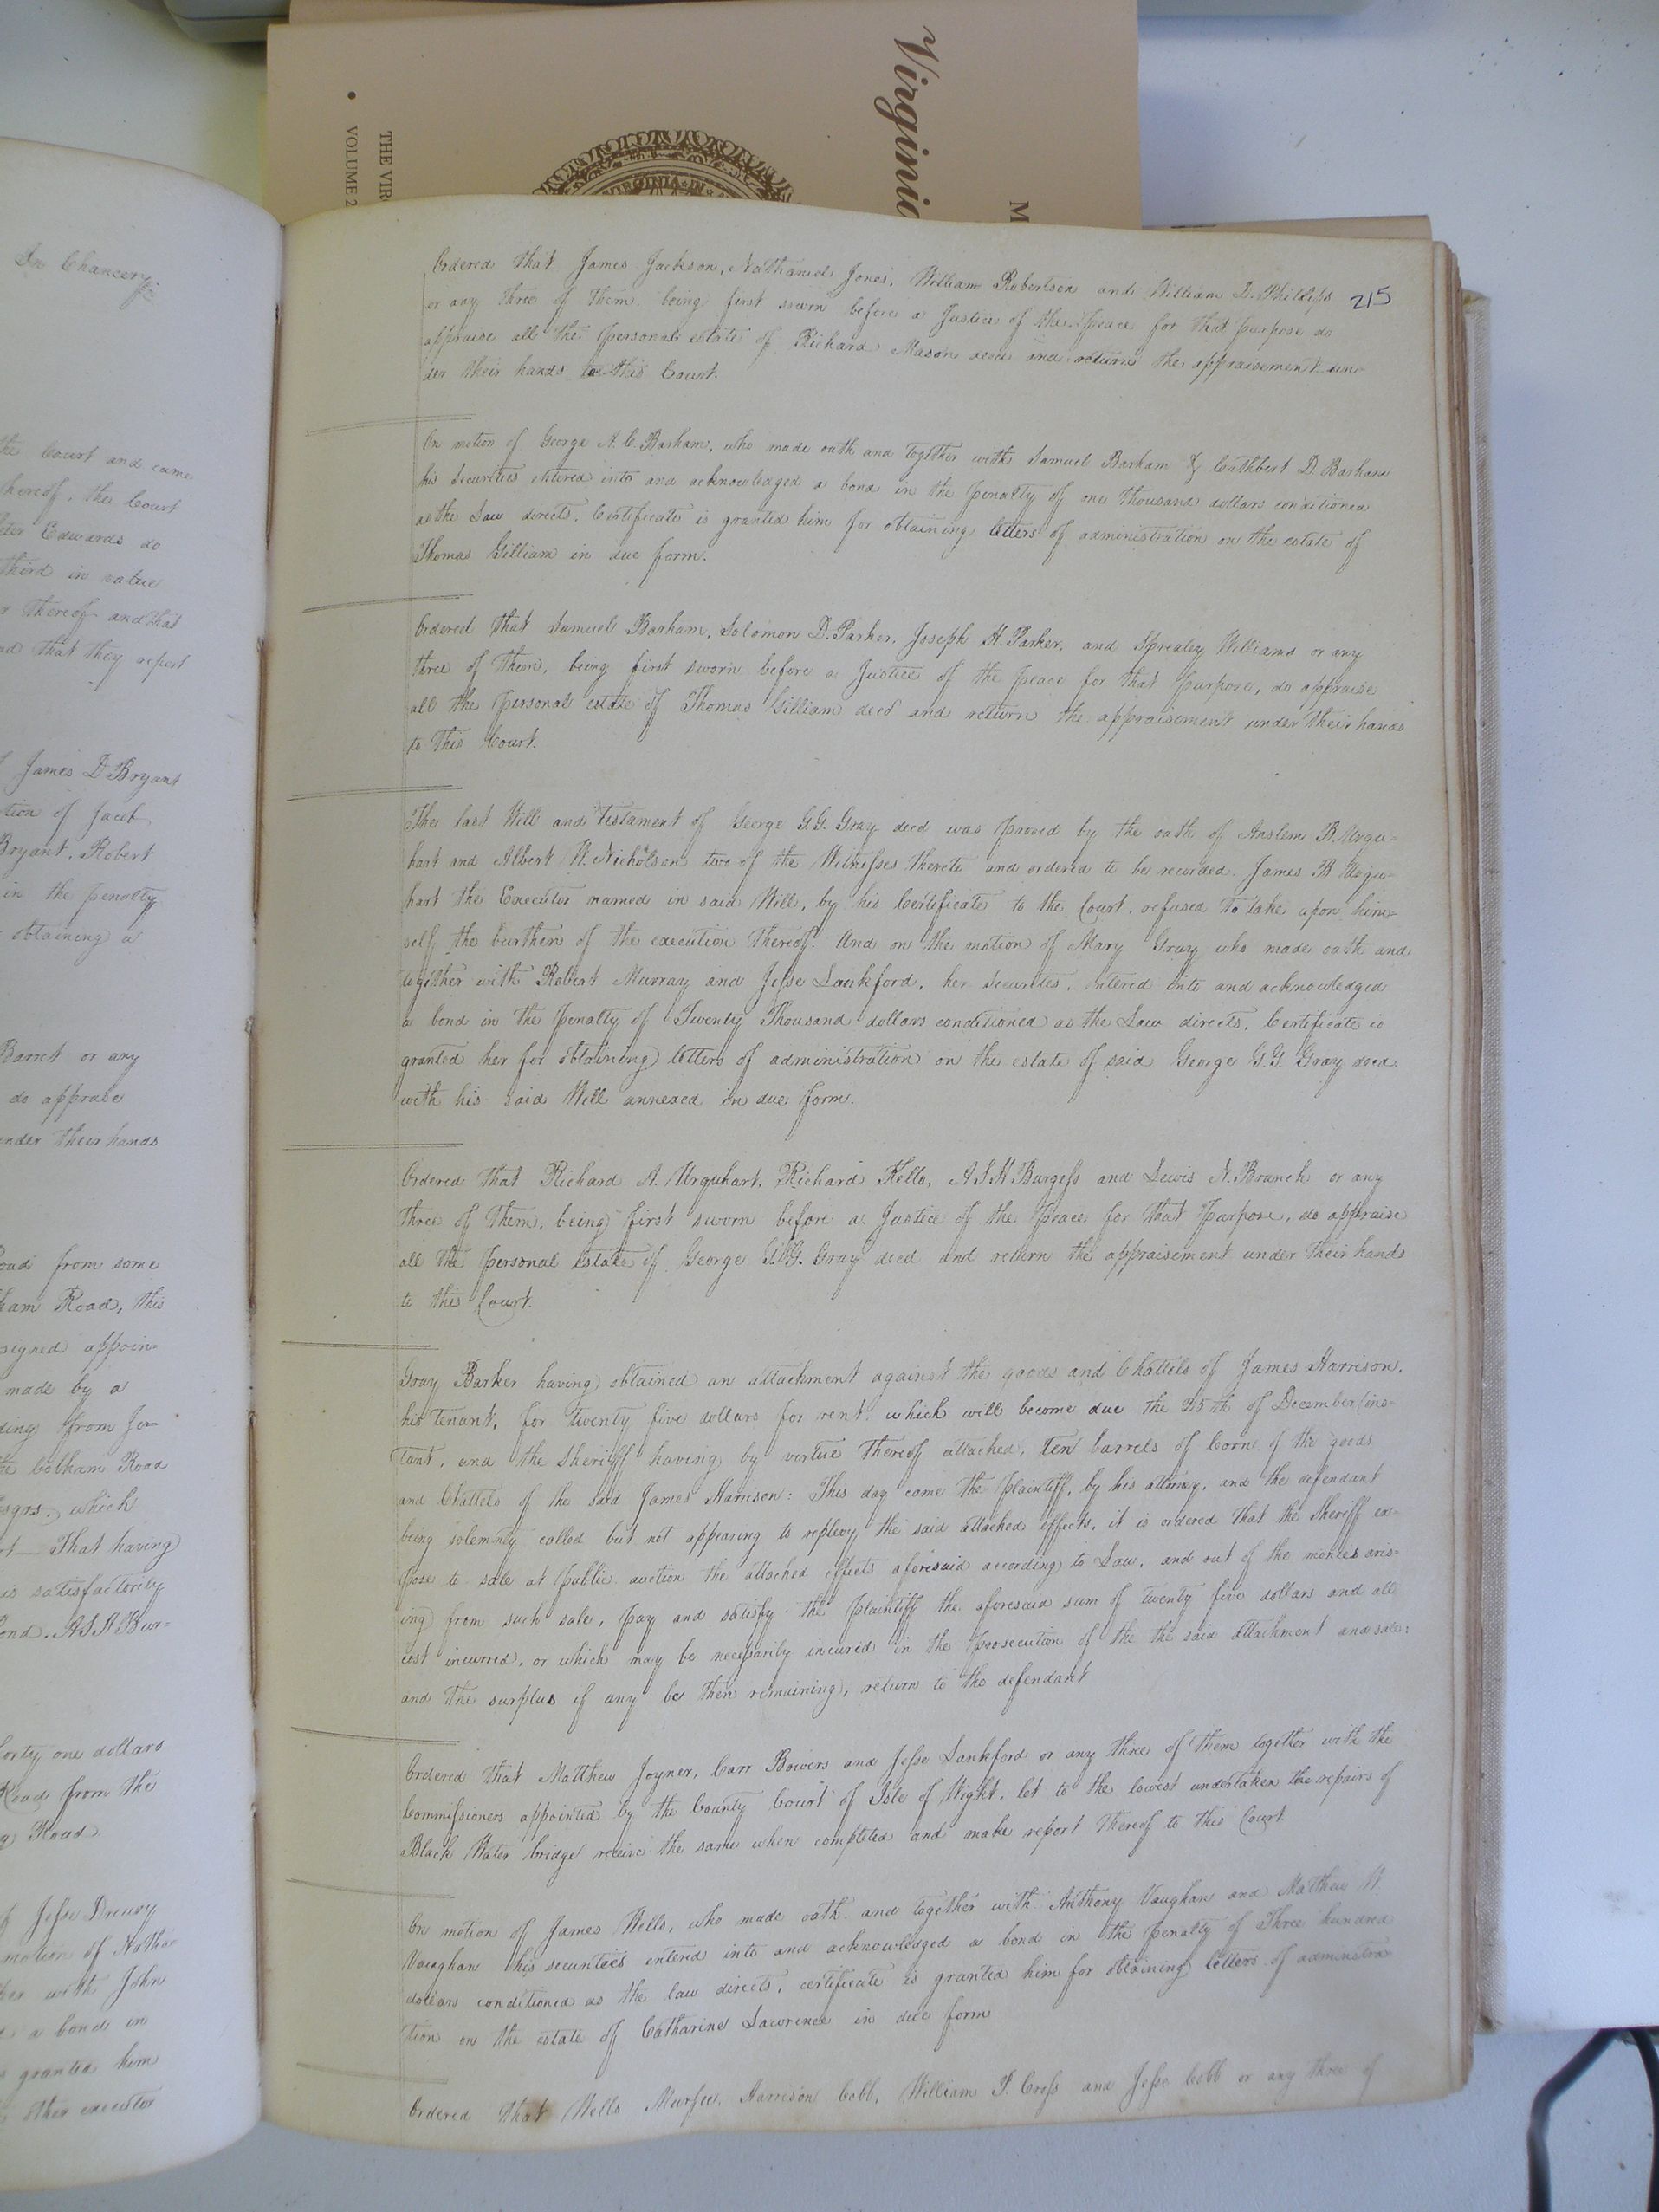 Virginia
M
THE VIR
• VOLUME 2
VIRGINIA IN
In Chancery
the Court and came
thereof, the Court
Edwards do
third in value
thereof and that
that they report
James D Bryant
tion of Jacob
Bryant, Robert
in the penalty
obtaining a
Barret or any
do appraise
under their hands
from some
ham Road, this
signed appoin-
made by a
ding from Je-
the Cobham Road
which
That having
is satisfactorily
A S H Bur-
forty one dollars
Road from the
Road
of Jesse Drewry
motion of Natha
with John
a bond in
granted him
other executor
215
Ordered that James Jackson, Nathaniel Jones, William Robertson and William D. Phillips
or any three of them, being first sworn before a Justice of the peace for that purpose do
appraise all the personal estate of Richard Mason decd and return the appraisement un-
der their hands to this Court.
On motion of George A. C. Barham, who made oath and together with Samuel Barham & Cuthbert D. Barham
his securities entered into and acknowledged a bond in the penalty of one thousand dollars conditioned
as the Law directs, Certificate is granted him for obtaining letters of administration on the estate of
Thomas Gilliam in due form.
Ordered that Samuel Barham, Solomon D. Parker, Joseph H. Parker, and Sprealey Williams or any
three of them, being first sworn before a Justice of the peace for that purpose, do appraise
all the personal estate of Thomas Gilliam decd and return the appraisement under their hands
to this Court.
The last Will and testament of George G.G. Gray decd was proved by the oath of Anslem B. Urqu-
hart and Albert W. Nicholson two of the Witnesses thereto and ordered to be recorded. James B Urqu-
hart the Executor named in said Will, by his Certificate to the Court, refused to take upon him-
self the burthen of the execution thereof. And on the motion of Mary Gray who made oath and
together with Robert Murray and Jesse Lankford, her securities, entered into and acknowledged
a bond in the penalty of Twenty Thousand dollars conditioned as the Law directs, Certificate is
granted her for obtaining letters of administration on the estate of said George G.G. Gray decd
with his said Will annexed in due form.
Ordered that Richard A. Urquhart, Richard Kello, A S H Burgess and Lewis N. Branch or any
three of them, being first sworn before a Justice of the peace for that purpose, do appraise
all the personal Estate of George G.G. Gray decd and return the appraisement under their hands
to this Court.
Gray Barker having obtained an attachment against the goods and Chattels of James Harrison,
his tenant, for twenty five dollars for rent, which will become due the 25th of December ins-
tant, and the Sheriff having by virtue thereof attached, ten barrels of Corn of the goods
and Chattels of the said James Harrison: This day came the Plaintiff, by his attorney, and the defendant
being solemnly called but not appearing to replevy the said attached effects, it is ordered that the Sheriff ex-
pose to sale at public auction the attached effects aforesaid according to Law, and out of the monies aris-
ing from such sale, pay and satisfy the plaintiff the aforesaid sum of twenty five dollars and all
cost incurred, or which may be necessarily incured in the prosecution of the the said attachment and sale:
and the surplus if any be then remaining, return to the defendant
Ordered that Matthew Joyner, Carr Bowers and Jesse Lankford or any three of them together with the
Commissioners appointed by the County Court of Isle of Wight, let to the lowest undertaker the repairs of
Black Water bridge receive the same when completed and make report thereof to this Court
On motion of James Wells, who made oath and together with Anthony Vaughan and Matthew W.
Vaughan his securities entered into and acknowledged a bond in the penalty of Three hundred
dollars conditioned as the law directs, certificate is granted him for obtaining letters of administra
tion on the estate of Catharine Lawrence in due form
Ordered that Wells Murfee, Harrison Cobb, William P. Cross and Jesse Cobb or any three of